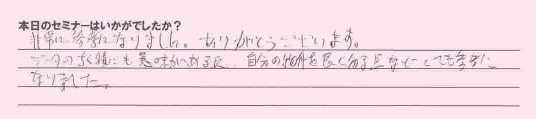 本日のセミナーはいかがでしたか？
非常に参考になりました。ありがとうございます。
データの蓄積にも意味がある点、自分の物件を良く知る点などとても参考に
なりました。